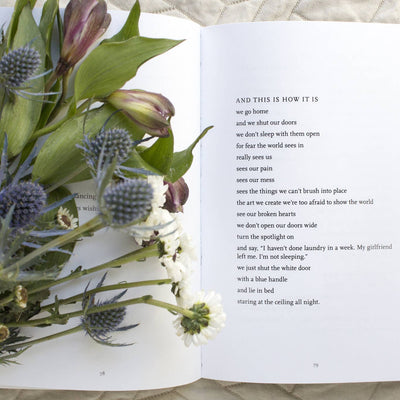 ancing
s wish
78
AND THIS IS HOW IT IS
we go home
and we shut our doors
we don't sleep with them open
for fear the world sees in
really sees us
sees our pain
sees our mess
sees the things we can't brush into place
the art we create we're too afraid to show the world
see our broken hearts
we don't open our doors wide
turn the spotlight on
and say, "I haven't done laundry in a week. My girlfriend
left me. I'm not sleeping."
we just shut the white door
with a blue handle
and lie in bed
staring at the ceiling all night.
79